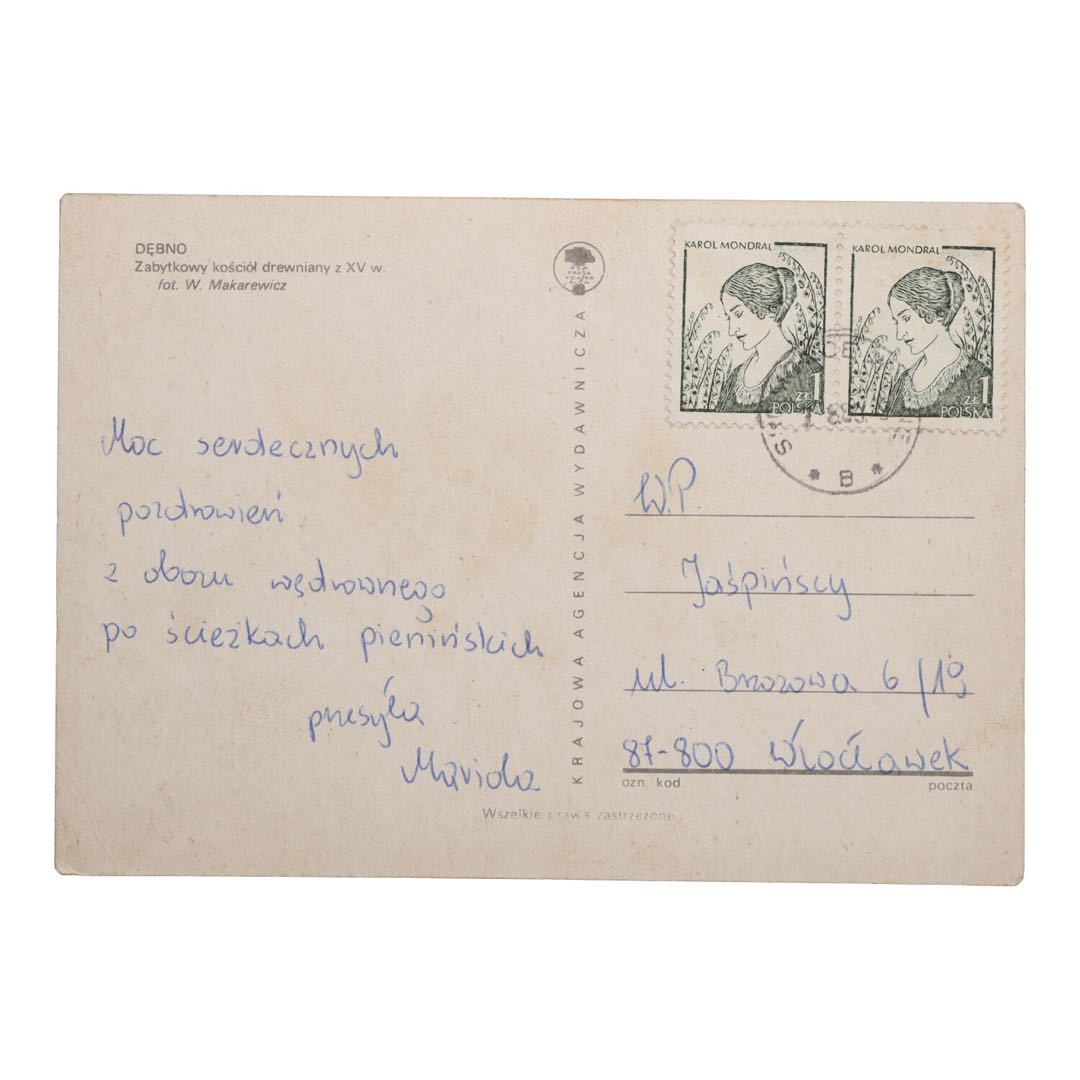 DĘBNO
Zabytkowy kościół drewniany z XV w.
fot. W. Makarewicz
Moc serdecznych
pozdrowień
z obozu wędrownego
po ścieżkach pienińskich
przesyła
Mariola
RSW
PRASA
KSIĄŻKA
RUCH
KRAJOWA AGENCJA WYDAWNICZA
KAROL MONDRAL
1
ZŁ
POLSKA
KAROL MONDRAL
1
ZŁ
POLSKA
* B *
W.P.
Jaśpińscy
ul. Brzozowa 6/19
87-800 Włocławek
ozn. kod
poczta
Wszelkie prawa zastrzeżone